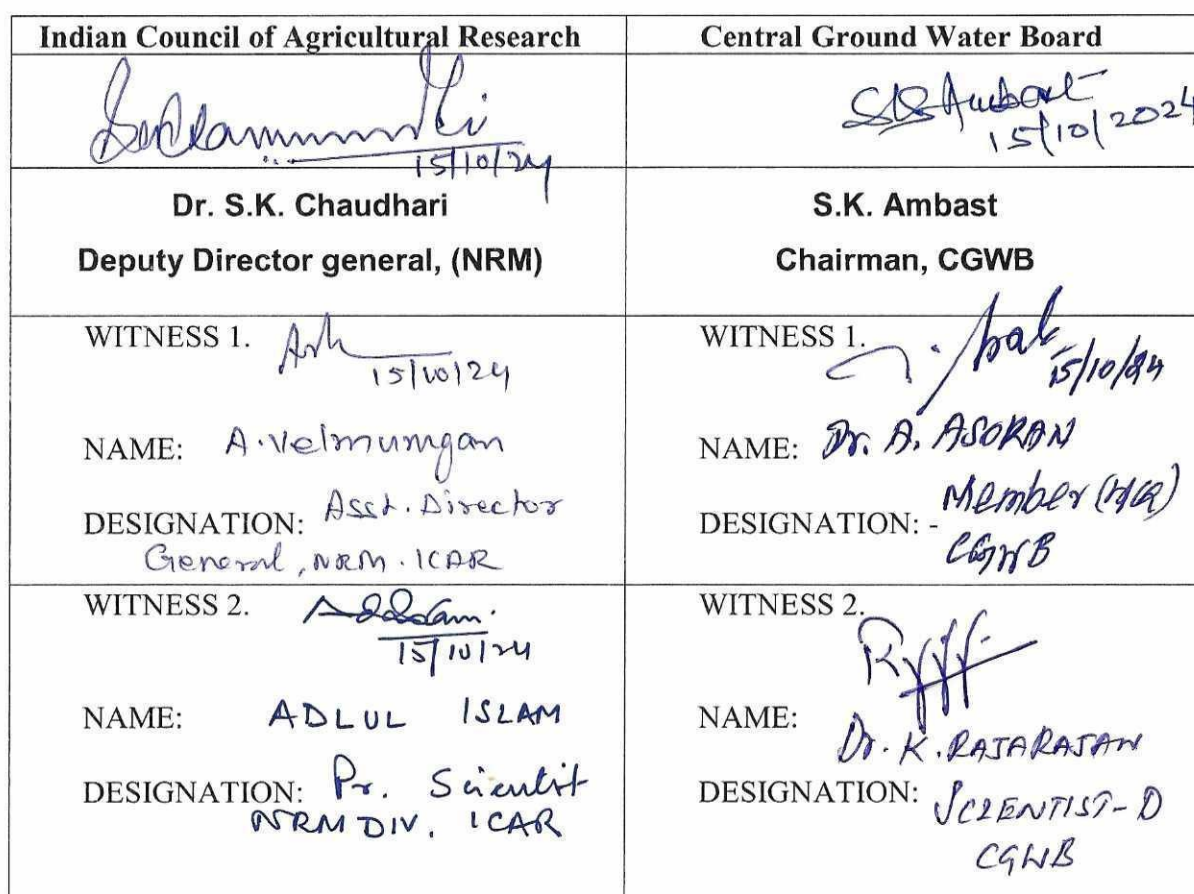 Indian Council of Agricultural Research
Central Ground Water Board
15/10/24
SKAmbast
15/10/2024
Dr. S.K. Chaudhari
Deputy Director general, (NRM)
S.K. Ambast
Chairman, CGWB
WITNESS 1.
15/10/24
NAME: A. Velmurugan
DESIGNATION: Asst. Director
General, NRM. ICAR
WITNESS 1.
15/10/24
NAME: Dr. A. ASOKAN
DESIGNATION: - Member (HQ)
CGWB
WITNESS 2.
15/10/24
NAME: ADLUL ISLAM
DESIGNATION: Pr. Scientist
NRM DIV. ICAR
WITNESS 2.
NAME: Dr. K. RAJARAJAN
DESIGNATION: SCIENTIST-D
CGWB